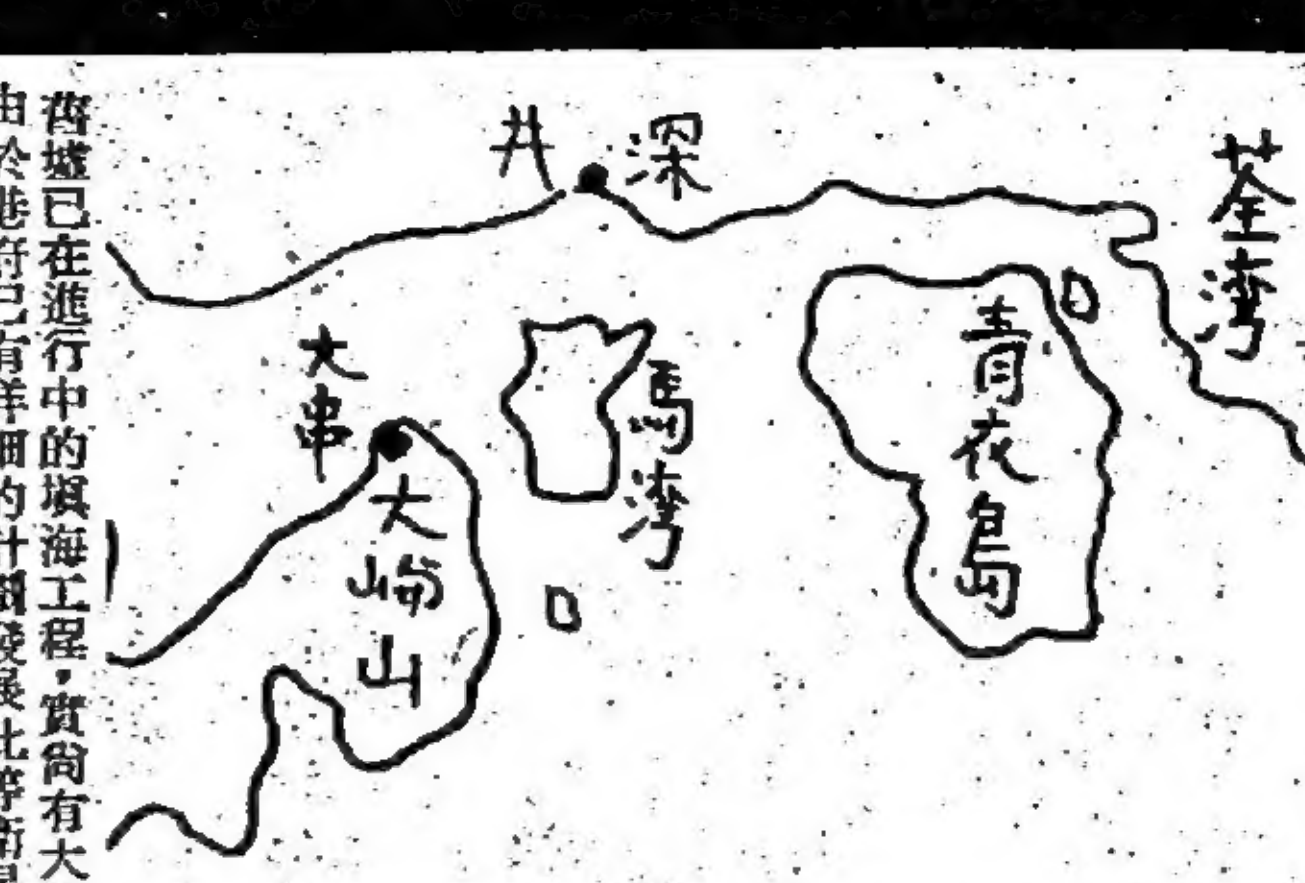 荃湾
深井
青衣島
馬湾
大串
大嶼山
舊墟已在進行中的塡海工程，實尙有大
由於港府已有詳細的計劃發展此等衛星